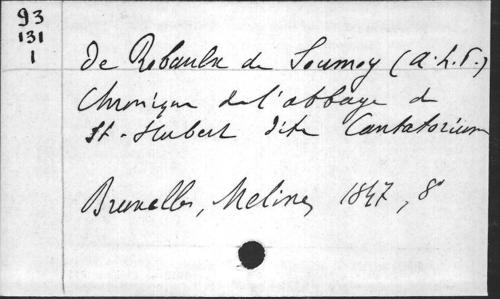 93
131
1
de Robaulx de Soumoy (A.L.P.)
Chronique de l'abbaye de
St-Hubert dite Cantatorium
Bruxelles, Meline, 1847, 8°